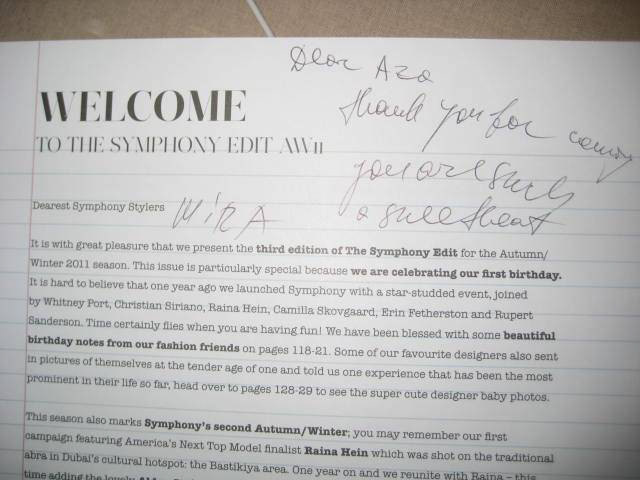 Dear Aza
thank you for coming
you are such
a sweetheart
MIRA
WELCOME
TO THE SYMPHONY EDIT AW11
Dearest Symphony Stylers
It is with great pleasure that we present the third edition of The Symphony Edit for the Autumn/
Winter 2011 season. This issue is particularly special because we are celebrating our first birthday.
It is hard to believe that one year ago we launched Symphony with a star-studded event, joined
by Whitney Port, Christian Siriano, Raina Hein, Camilla Skovgaard, Erin Fetherston and Rupert
Sanderson. Time certainly flies when you are having fun! We have been blessed with some beautiful
birthday notes from our fashion friends on pages 118-21. Some of our favourite designers also sent
in pictures of themselves at the tender age of one and told us one experience that has been the most
prominent in their life so far, head over to pages 128-29 to see the super cute designer baby photos.
This season also marks Symphony's second Autumn/Winter; you may remember our first
campaign featuring America's Next Top Model finalist Raina Hein which was shot on the traditional
abra in Dubai's cultural hotspot: the Bastikiya area. One year on and we reunite with Raina – this
time adding the lovely